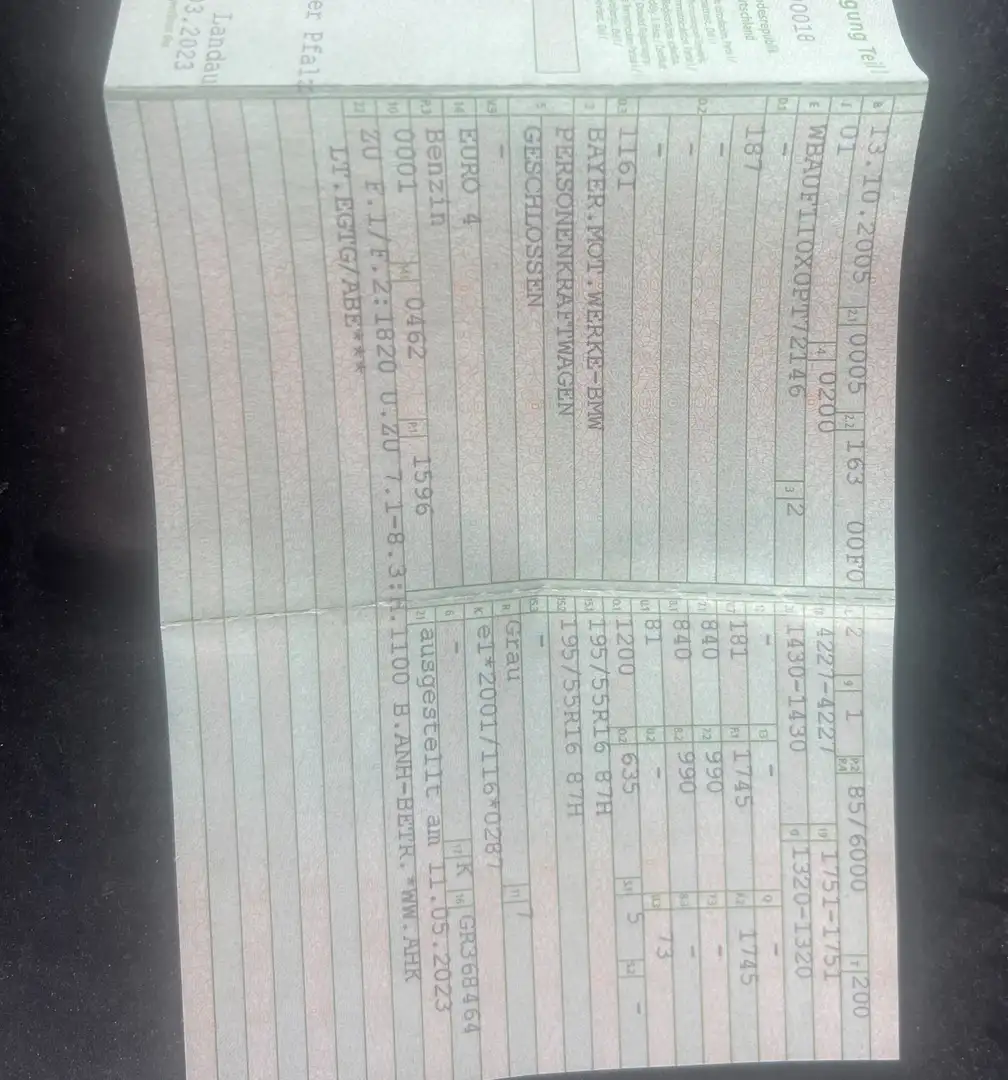 gung Teil I
00018
ndesrepublik
tschland
er Pfalz
Landau
03.2023
B 13.10.2005 2.1 0005 2.2 163 00F0
J 01 4 0200
E WBAUF110X0PT72146 3 2
D.1 -
187
D.2 -
-
D.3 116I
2 BAYER.MOT.WERKE-BMW
5 PERSONENKRAFTWAGEN
GESCHLOSSEN
V.9 -
14 EURO 4
P.3 Benzin
10 0001 14.1 0462 P.1 1596
22 ZU F.1/F.2:1820 U.ZU 7.1-8.3:M.1100 B.ANH-BETR.*WW.AHK
LT.EGTG/ABE***
L 2 9 1 P.2 P.4 85/6000 T 200
18 4227-4227 19 1751-1751
20 1430-1430 G 1320-1320
12 - 13 - Q -
V.7 181 F.1 1745 F.2 1745
7.1 840 7.2 990 7.3 -
8.1 840 8.2 990 8.3 -
U.1 81 U.2 - U.3 73
O.1 1200 O.2 635 S.1 5 S.2 -
15.1 195/55R16 87H
15.2 195/55R16 87H
15.3 -
R Grau 11 7
K e1*2001/116*0287
6 - 17 K 16 GR368464
21 ausgestellt am 11.05.2023